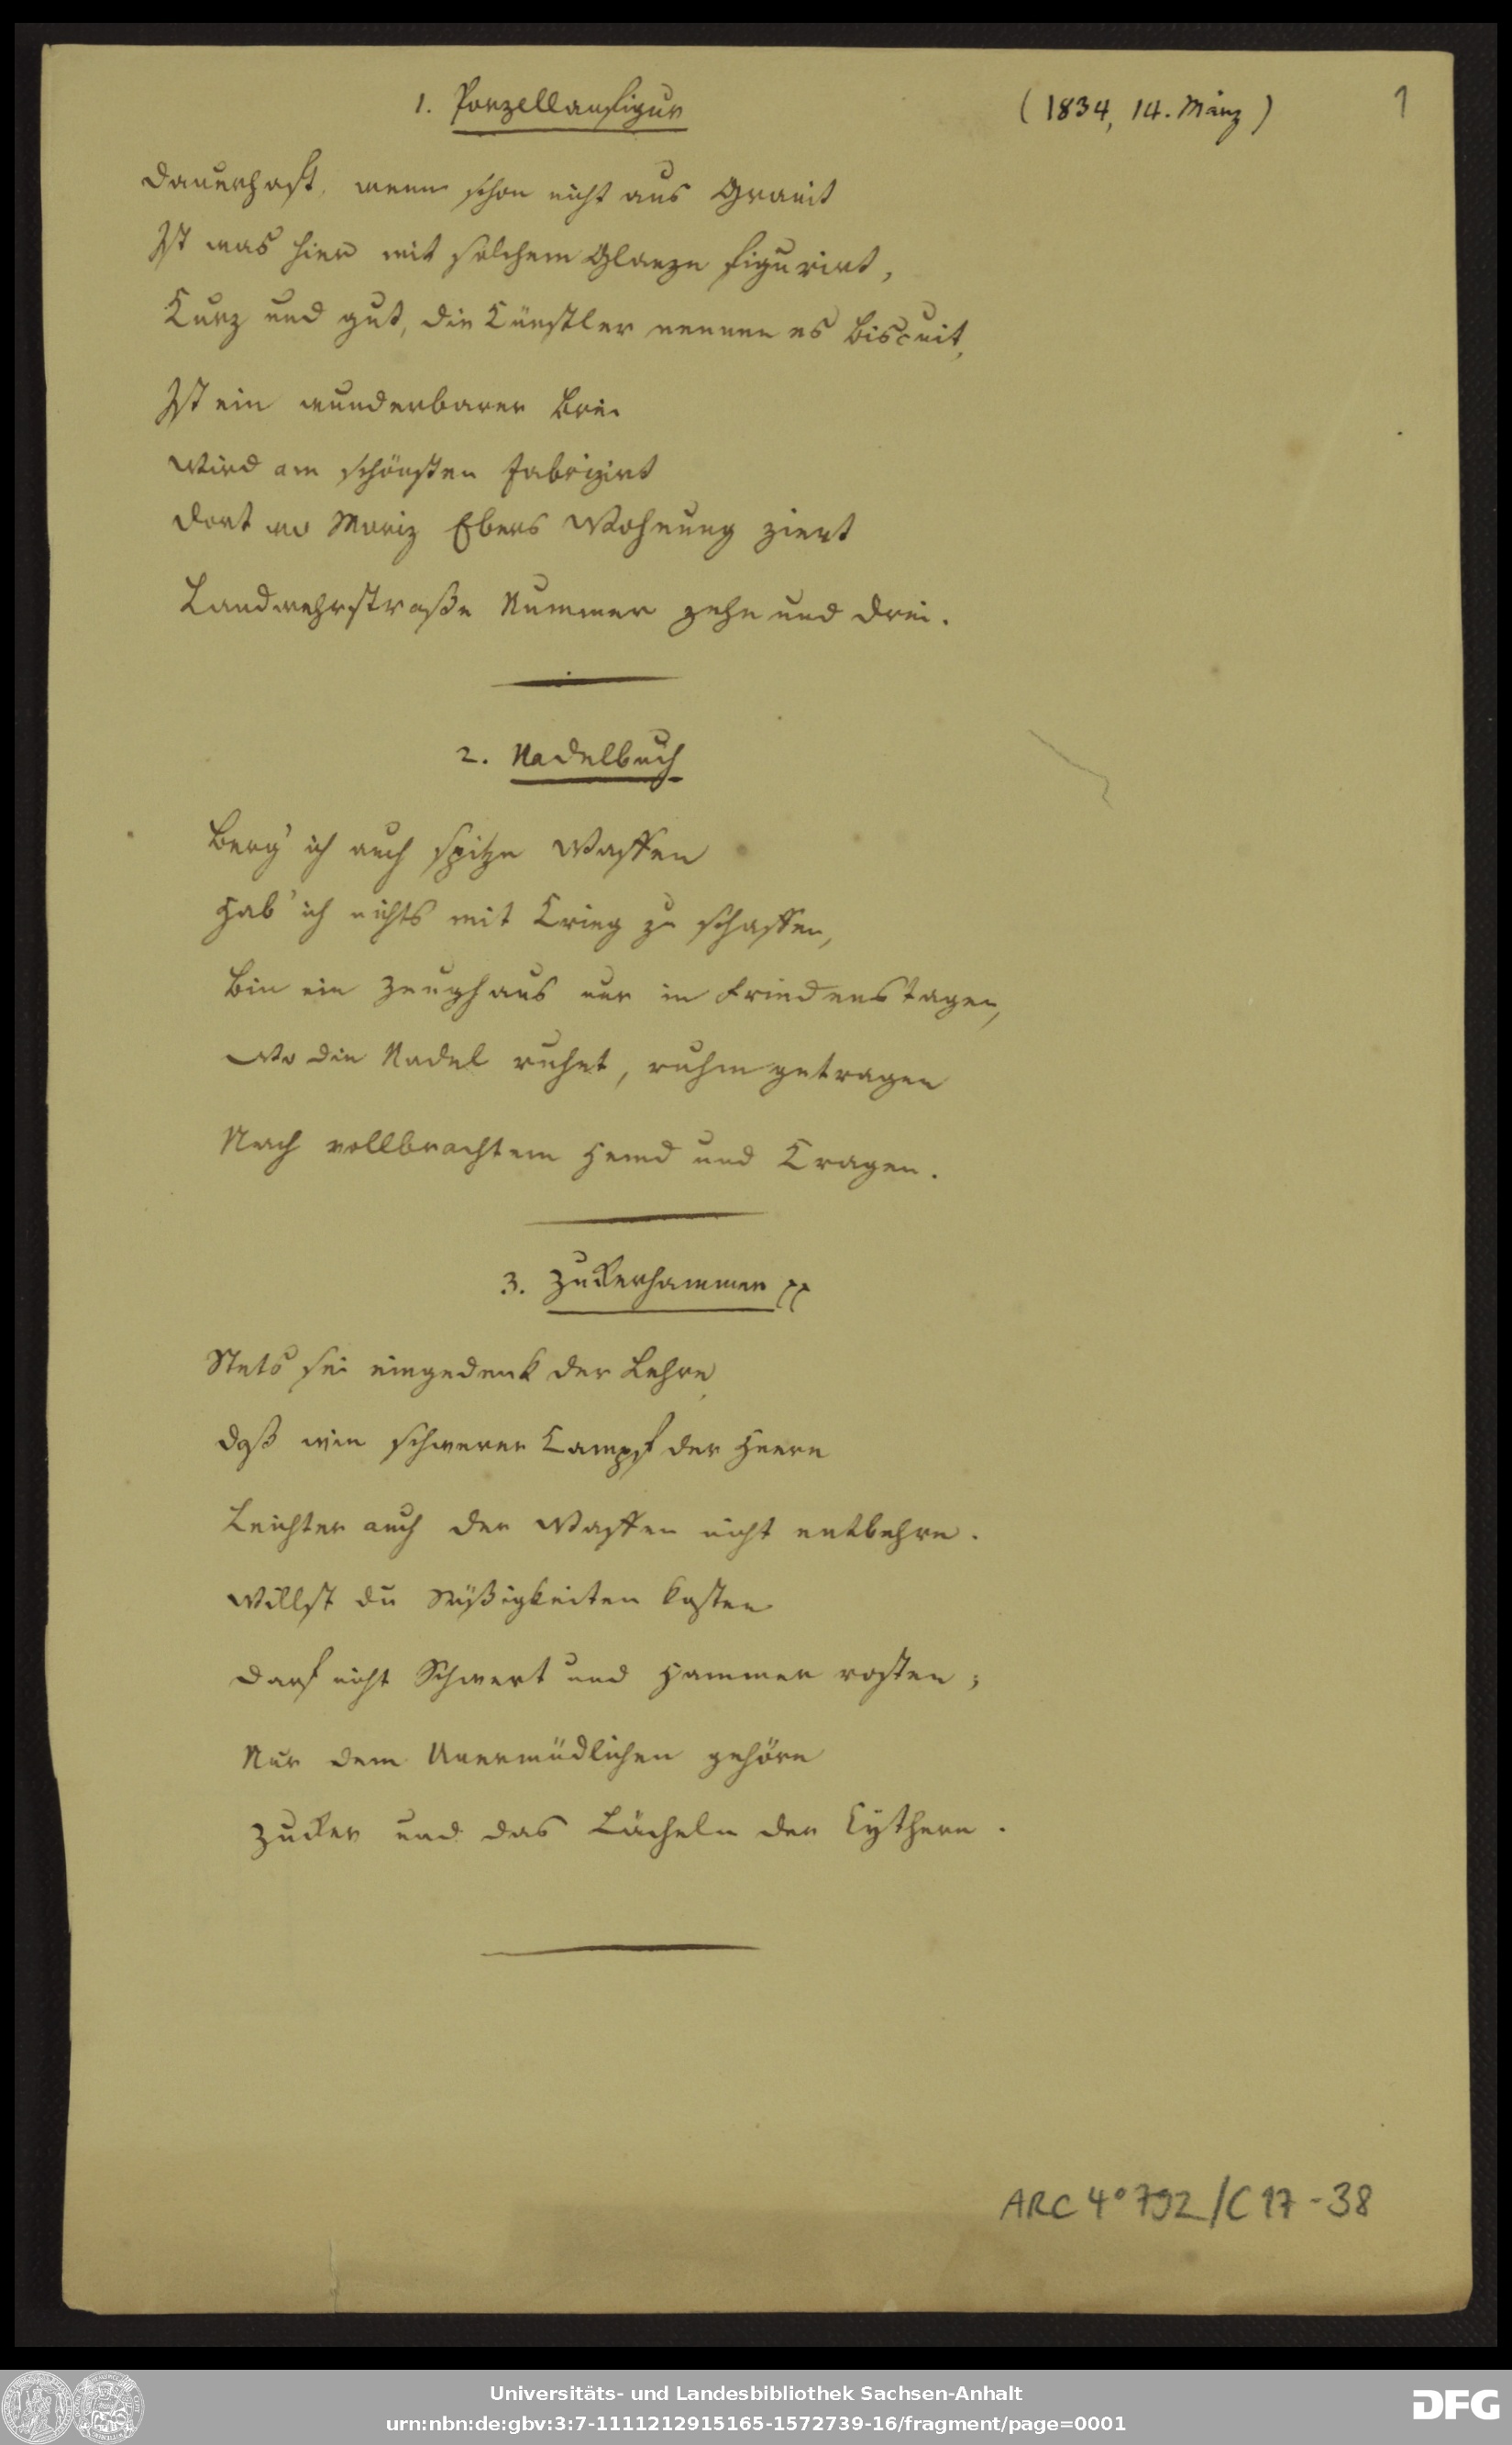 1. Porzellanfigur
(1834, 14. März)
1
Dauerhaft, wenn schon nicht aus Granit
Ist was hier mit solchem Glanze figurirt,
Kurz und gut, die Künstler nennen es Biscuit,
Ist ein wunderbarer Brei
Wird am schönsten fabrizirt
Dort wo Moriz Ebers Wohnung ziert
Landwehrstraße Nummer zehn und drei.
2. Nadelbuch
Berg' ich auch spitze Waffen
Hab' ich nichts mit Krieg zu schaffen,
Bin ein Zeughaus nur in Friedenstagen,
Wo die Nadel ruhet, ruhmgetragen
Nach vollbrachtem Hemd und Kragen.
3. Zuckerhammer
Stets sei eingedenk der Lehre,
Daß wie schwerer Kampf der Heere
Leichter auch der Waffen nicht entbehre.
Willst du Süßigkeiten kosten
Darf nicht Schwert und Hammer rosten;
Nur dem Unermüdlichen gehöre
Zucker und das Lächeln der Cythere.
ARC 4° 792/C 17-38
Universitäts- und Landesbibliothek Sachsen-Anhalt
urn:nbn:de:gbv:3:7-1111212915165-1572739-16/fragment/page=0001
DFG